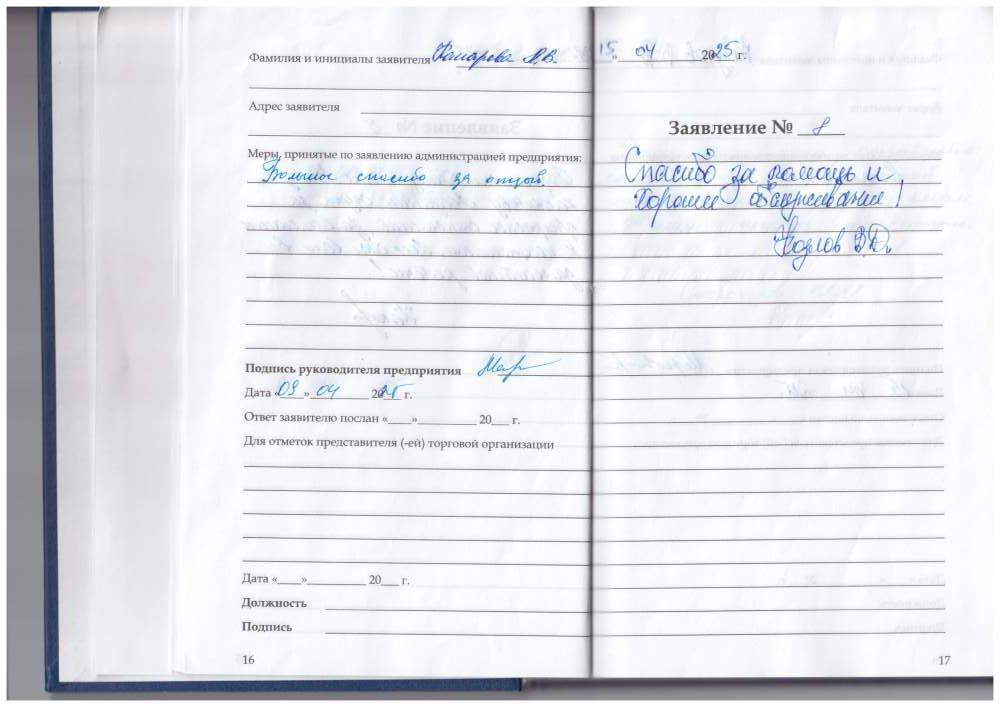 Фамилия и инициалы заявителя Комарова А.В.
Адрес заявителя
Меры, принятые по заявлению администрацией предприятия:
Большое спасибо за отзыв.
Подпись руководителя предприятия
Дата «09» 04 2025 г.
Ответ заявителю послан «____»__________ 20___ г.
Для отметок представителя (-ей) торговой организации
Дата «____»__________ 20___ г.
Должность
Подпись
16
15 » 04 2025 г.
Заявление № 8
Спасибо за помощь и
хорошее обслуживание!
Козлов В.Д.
17